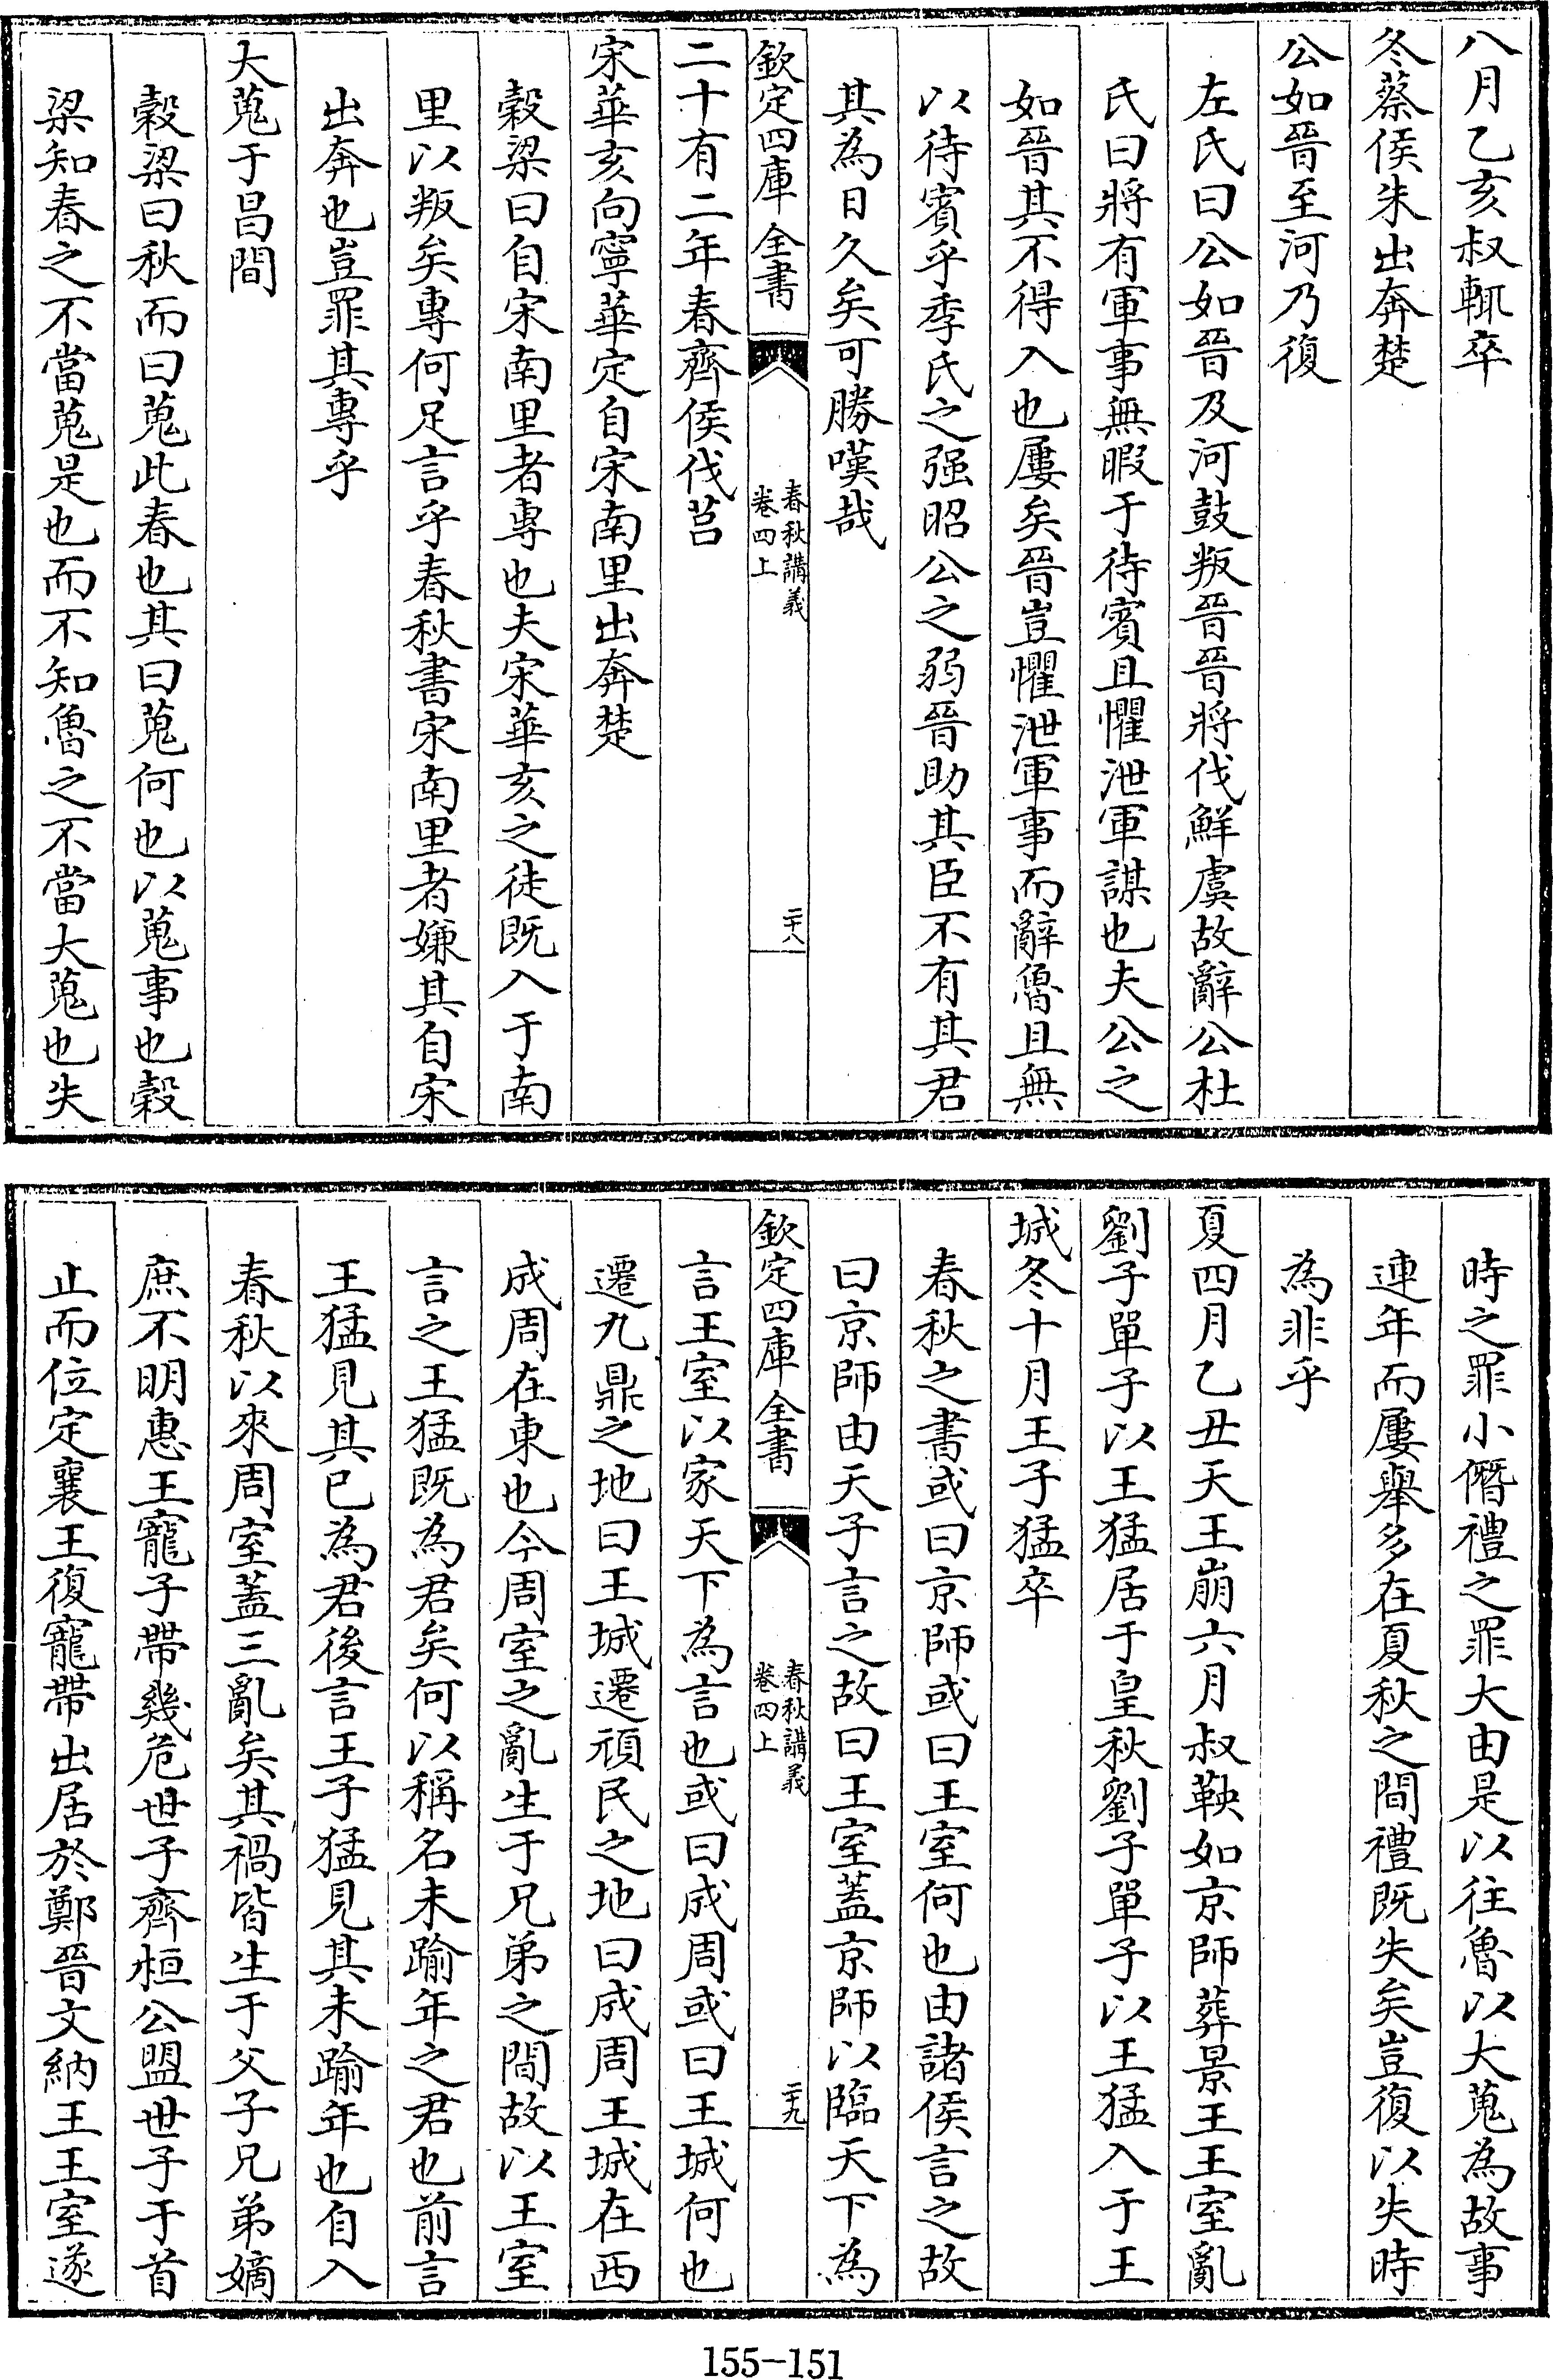 八月乙亥叔輒卒
冬蔡侯朱出奔楚
公如晉至河乃復
左氏曰公如晉及河鼓叛晉晉將伐鮮虞故辭公杜
氏曰將有軍事無暇于待賓且懼泄軍謀也夫公之
如晉其不得入也屢矣晉豈懼泄軍事而辭魯且無
以待賓乎季氏之强昭公之弱晉助其臣不有其君
其為日久矣可勝嘆哉
欽定四庫全書
春秋講義
卷四上
二十八
二十有二年春齊侯伐莒
宋華亥向寧華定自宋南里出奔楚
穀梁曰自宋南里者專也夫宋華亥之徒既入于南
里以叛矣專何足言乎春秋書宋南里者嫌其自宋
出奔也豈罪其專乎
大蒐于昌間
穀梁曰秋而曰蒐此春也其曰蒐何也以蒐事也穀
梁知春之不當蒐是也而不知魯之不當大蒐也失
時之罪小僭禮之罪大由是以往魯以大蒐為故事
連年而屢舉多在夏秋之間禮既失矣豈復以失時
為非乎
夏四月乙丑天王崩六月叔鞅如京師葬景王王室亂
劉子單子以王猛居于皇秋劉子單子以王猛入于王
城冬十月王子猛卒
春秋之書或曰京師或曰王室何也由諸侯言之故
曰京師由天子言之故曰王室蓋京師以臨天下為
欽定四庫全書
春秋講義
卷四上
二十九
言王室以家天下為言也或曰成周或曰王城何也
遷九鼎之地曰王城遷頑民之地曰成周王城在西
成周在東也今周室之亂生于兄弟之間故以王室
言之王猛既為君矣何以稱名未踰年之君也前言
王猛見其已為君後言王子猛見其未踰年也自入
春秋以來周室蓋三亂矣其禍皆生于父子兄弟嫡
庶不明惠王寵子帶幾危世子齊桓公盟世子于首
止而位定襄王復寵帶出居於鄭晉文納王王室遂
155-151